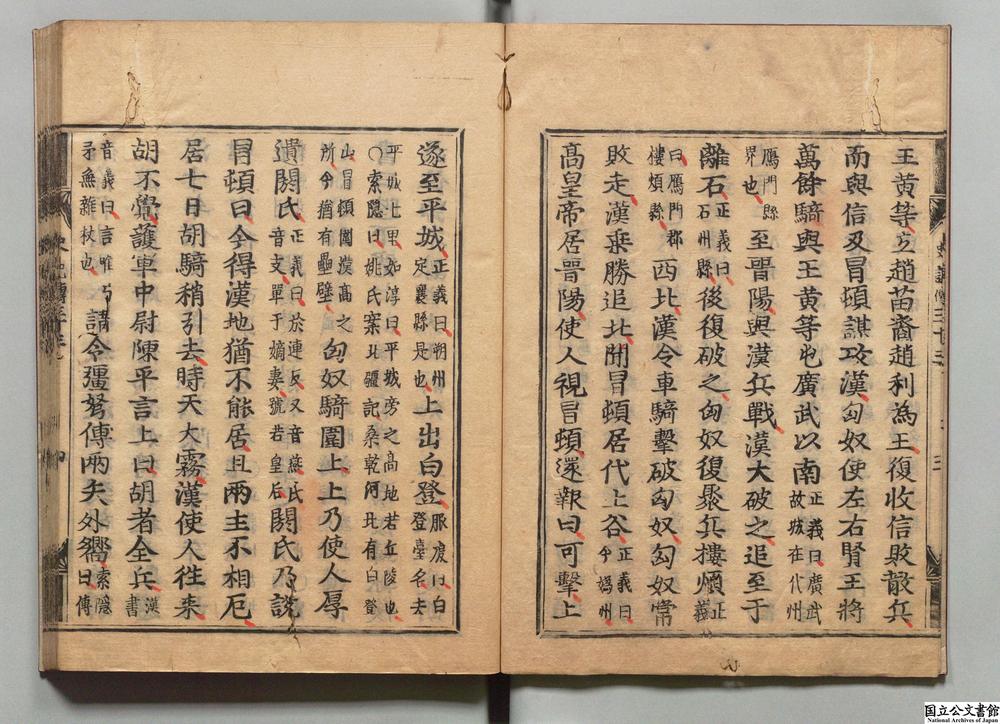 王黃等立趙苗裔趙利為王復收信敗散兵
而與信及冒頓謀攻漢匈奴使左右賢王將
萬餘騎與王黃等屯廣武以南正義曰廣武故城在代州
鴈門縣界也至晉陽與漢兵戰漢大破之追至于
離石正義曰石州縣後復破之匈奴復聚兵樓煩正義
曰鴈門郡樓煩縣西北漢令車騎擊破匈奴匈奴常
敗走漢乘勝追北聞冒頓居代上谷正義曰今媯州
高皇帝居晉陽使人視冒頓還報曰可擊上
遂至平城正義曰朔州定襄縣是也上出白登服虔曰白登臺名去
平城七里如淳曰平城旁之高地若丘陵也○索隱曰姚氏案北疆記桑乾河北有白登
山冒頓圍漢高之所今猶有壘壁匈奴騎圍上上乃使人厚
遺閼氏正義曰於連反又音燕氏音支單于嫡妻號若皇后閼氏乃說
冒頓曰今得漢地猶不能居且兩主不相厄
居七日胡騎稍引去時天大霧漢使人往來
胡不覺護軍中尉陳平言上曰胡者全兵漢書
音義曰言唯弓矛無雜杖也請令彊弩傅兩矢外嚮索隱曰傅
国立公文書館
National Archives of Japan